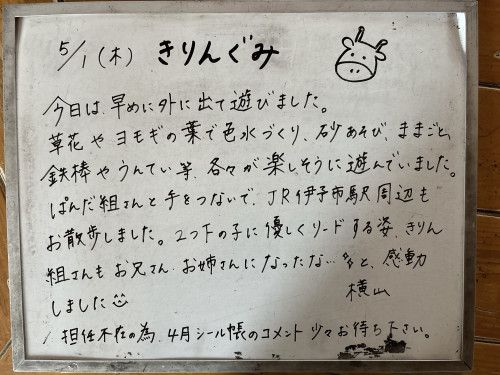 5/1(木) きりんぐみ
今日は、早めに外に出て遊びました。
草花やヨモギの葉で色水づくり、砂あそび、ままごと、
鉄棒やうんてい等、各々が楽しそうに遊んでいました。
ぱんだ組さんと手をつないで、JR伊予市駅周辺も
お散歩しました。2つ下の子に優しくリードする姿、きりん
組さんもお兄さん、お姉さんになったな…と、感動
しました
横山
担任不在の為、4月シール帳のコメント少々お待ち下さい。